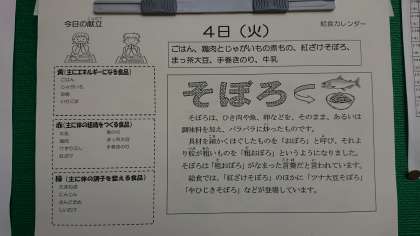 今日の献立
給食カレンダー
4日（火）
ごはん、鶏肉とじゃがいもの煮もの、紅ざけそぼろ、
まっ茶大豆、手巻きのり、牛乳
黄（主にエネルギーになる食品）
ごはん
じゃがいも
赤（主に体の組織をつくる食品）
手巻きのり
紅ざけ
緑（主に体の調子を整える食品）
たまねぎ
にんじん
そぼろ
そぼろは、ひき肉や魚、卵などを、そのまま、あるいは
調味料を加え、バラバラに炒ったものです。
具材を細かくほぐしたものを「おぼろ」と呼び、それよ
り粒が粗いものを「粗おぼろ」というようになりました。
そぼろは「粗おぼろ」がなまった言葉だと言われています。
給食では、「紅ざけそぼろ」のほかに「ツナ大豆そぼろ」
や「やひじきそぼろ」などが登場しています。